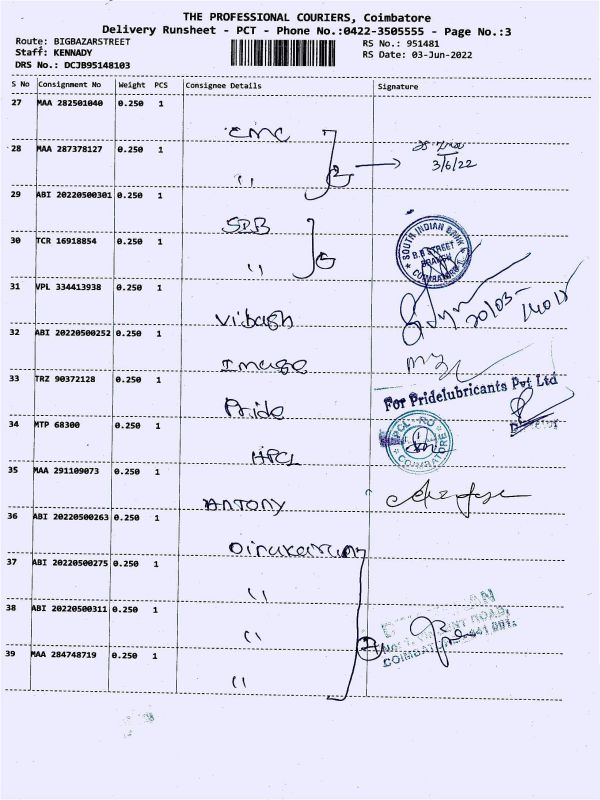 THE PROFESSIONAL COURIERS, Coimbatore
Delivery Runsheet - PCT - Phone No.:0422-3505555 - Page No.:3
Route: BIGBAZARSTREET
Staff: KENNADY
DRS No.: DCJB95148103
RS No.: 951481
RS Date: 03-Jun-2022
S No Consignment No Weight PCS Consignee Details Signature
27 MAA 282501040 0.250 1
EMC
28 MAA 287378127 0.250 1
3/6/22
"
29 ABI 20220500301 0.250 1
SOUTH INDIAN BANK
B.B STREET
BRANCH
COIMBATORE
30 TCR 16918854 0.250 1
"
31 VPL 334413938 0.250 1
Vibash
32 ABI 20220500252 0.250 1
Image
33 TRZ 90372128 0.250 1
For Pridelubricants Pvt Ltd
Pride
34 MTP 68300 0.250 1
HPCL RO
COIMBATORE
HPCL
35 MAA 291109073 0.250 1
ANTONY
36 ABI 20220500263 0.250 1
37 ABI 20220500275 0.250 1
"
38 ABI 20220500311 0.250 1
"
39 MAA 284748719 0.250 1
"